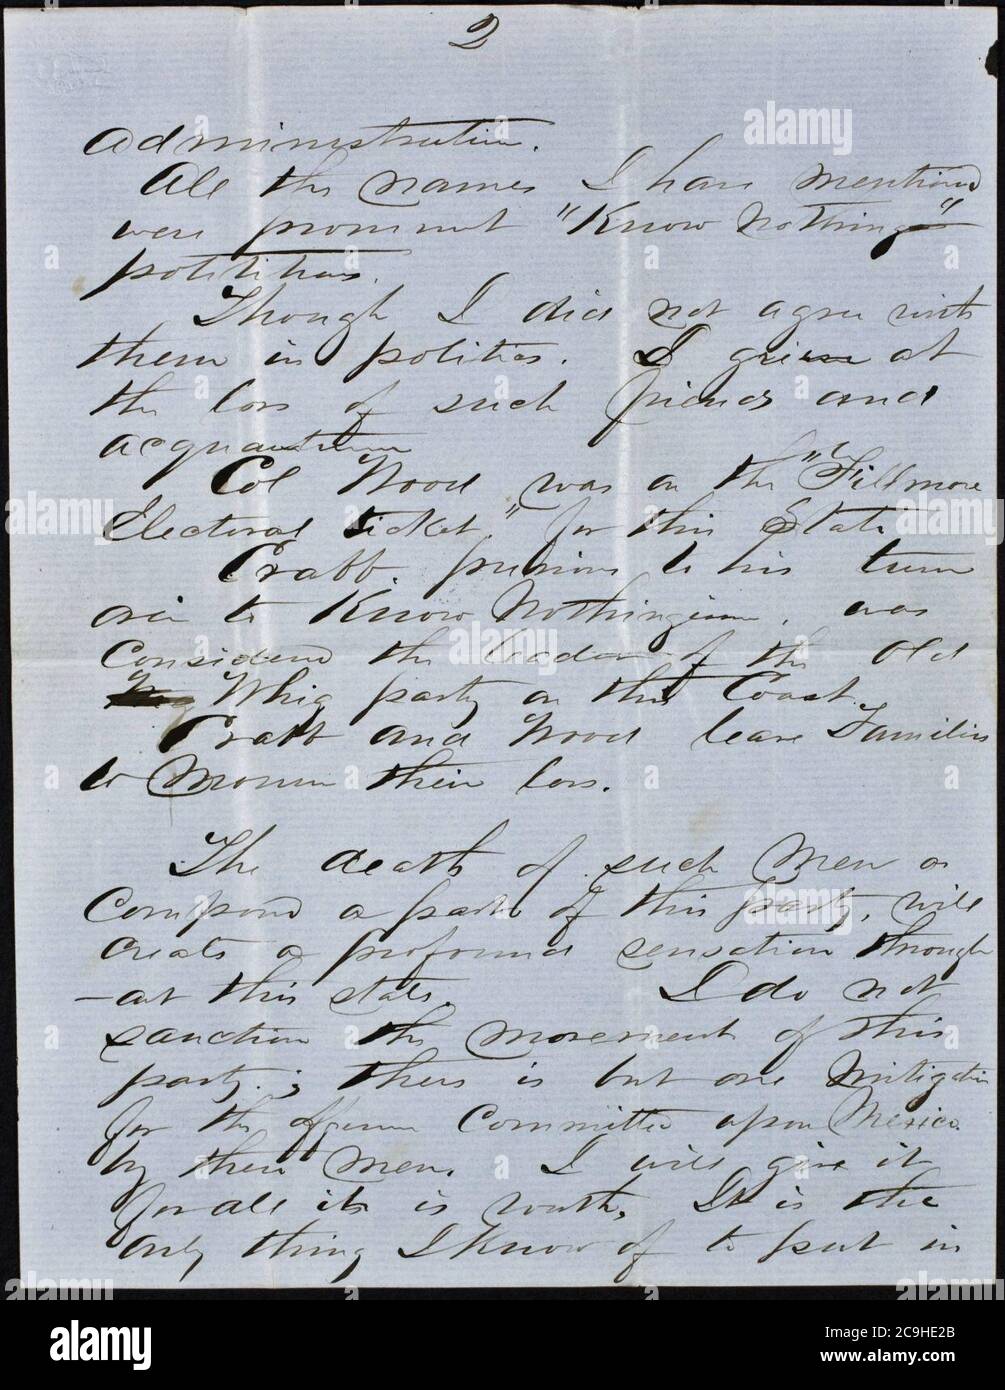 2
administration.
All the names I have mentioned
were prominent "Know Nothing"
polititians.
Though I did not agree with
them in politics. I grieve at
the loss of such friends and
acquaintances
Col Wood was on the "Fillmore
Electoral ticket," for this State
Crabb, previous to his turn
over to Know Nothingism, was
Considered the leader of the Old
Whig party on this Coast.
Crabb and Wood leave Families
to Mourn their loss.
The death of such Men as
Composed a part of this party, will
create a profound sensation through
-out this state. I do not
sanction the movement of this
party; there is but one Mitigation
for the offense Committed upon Mexico
by these Men. I will give it
for all it is worth, It is the
only thing I know of to put in
alamy
Image ID: 2C9HE2B
www.alamy.com